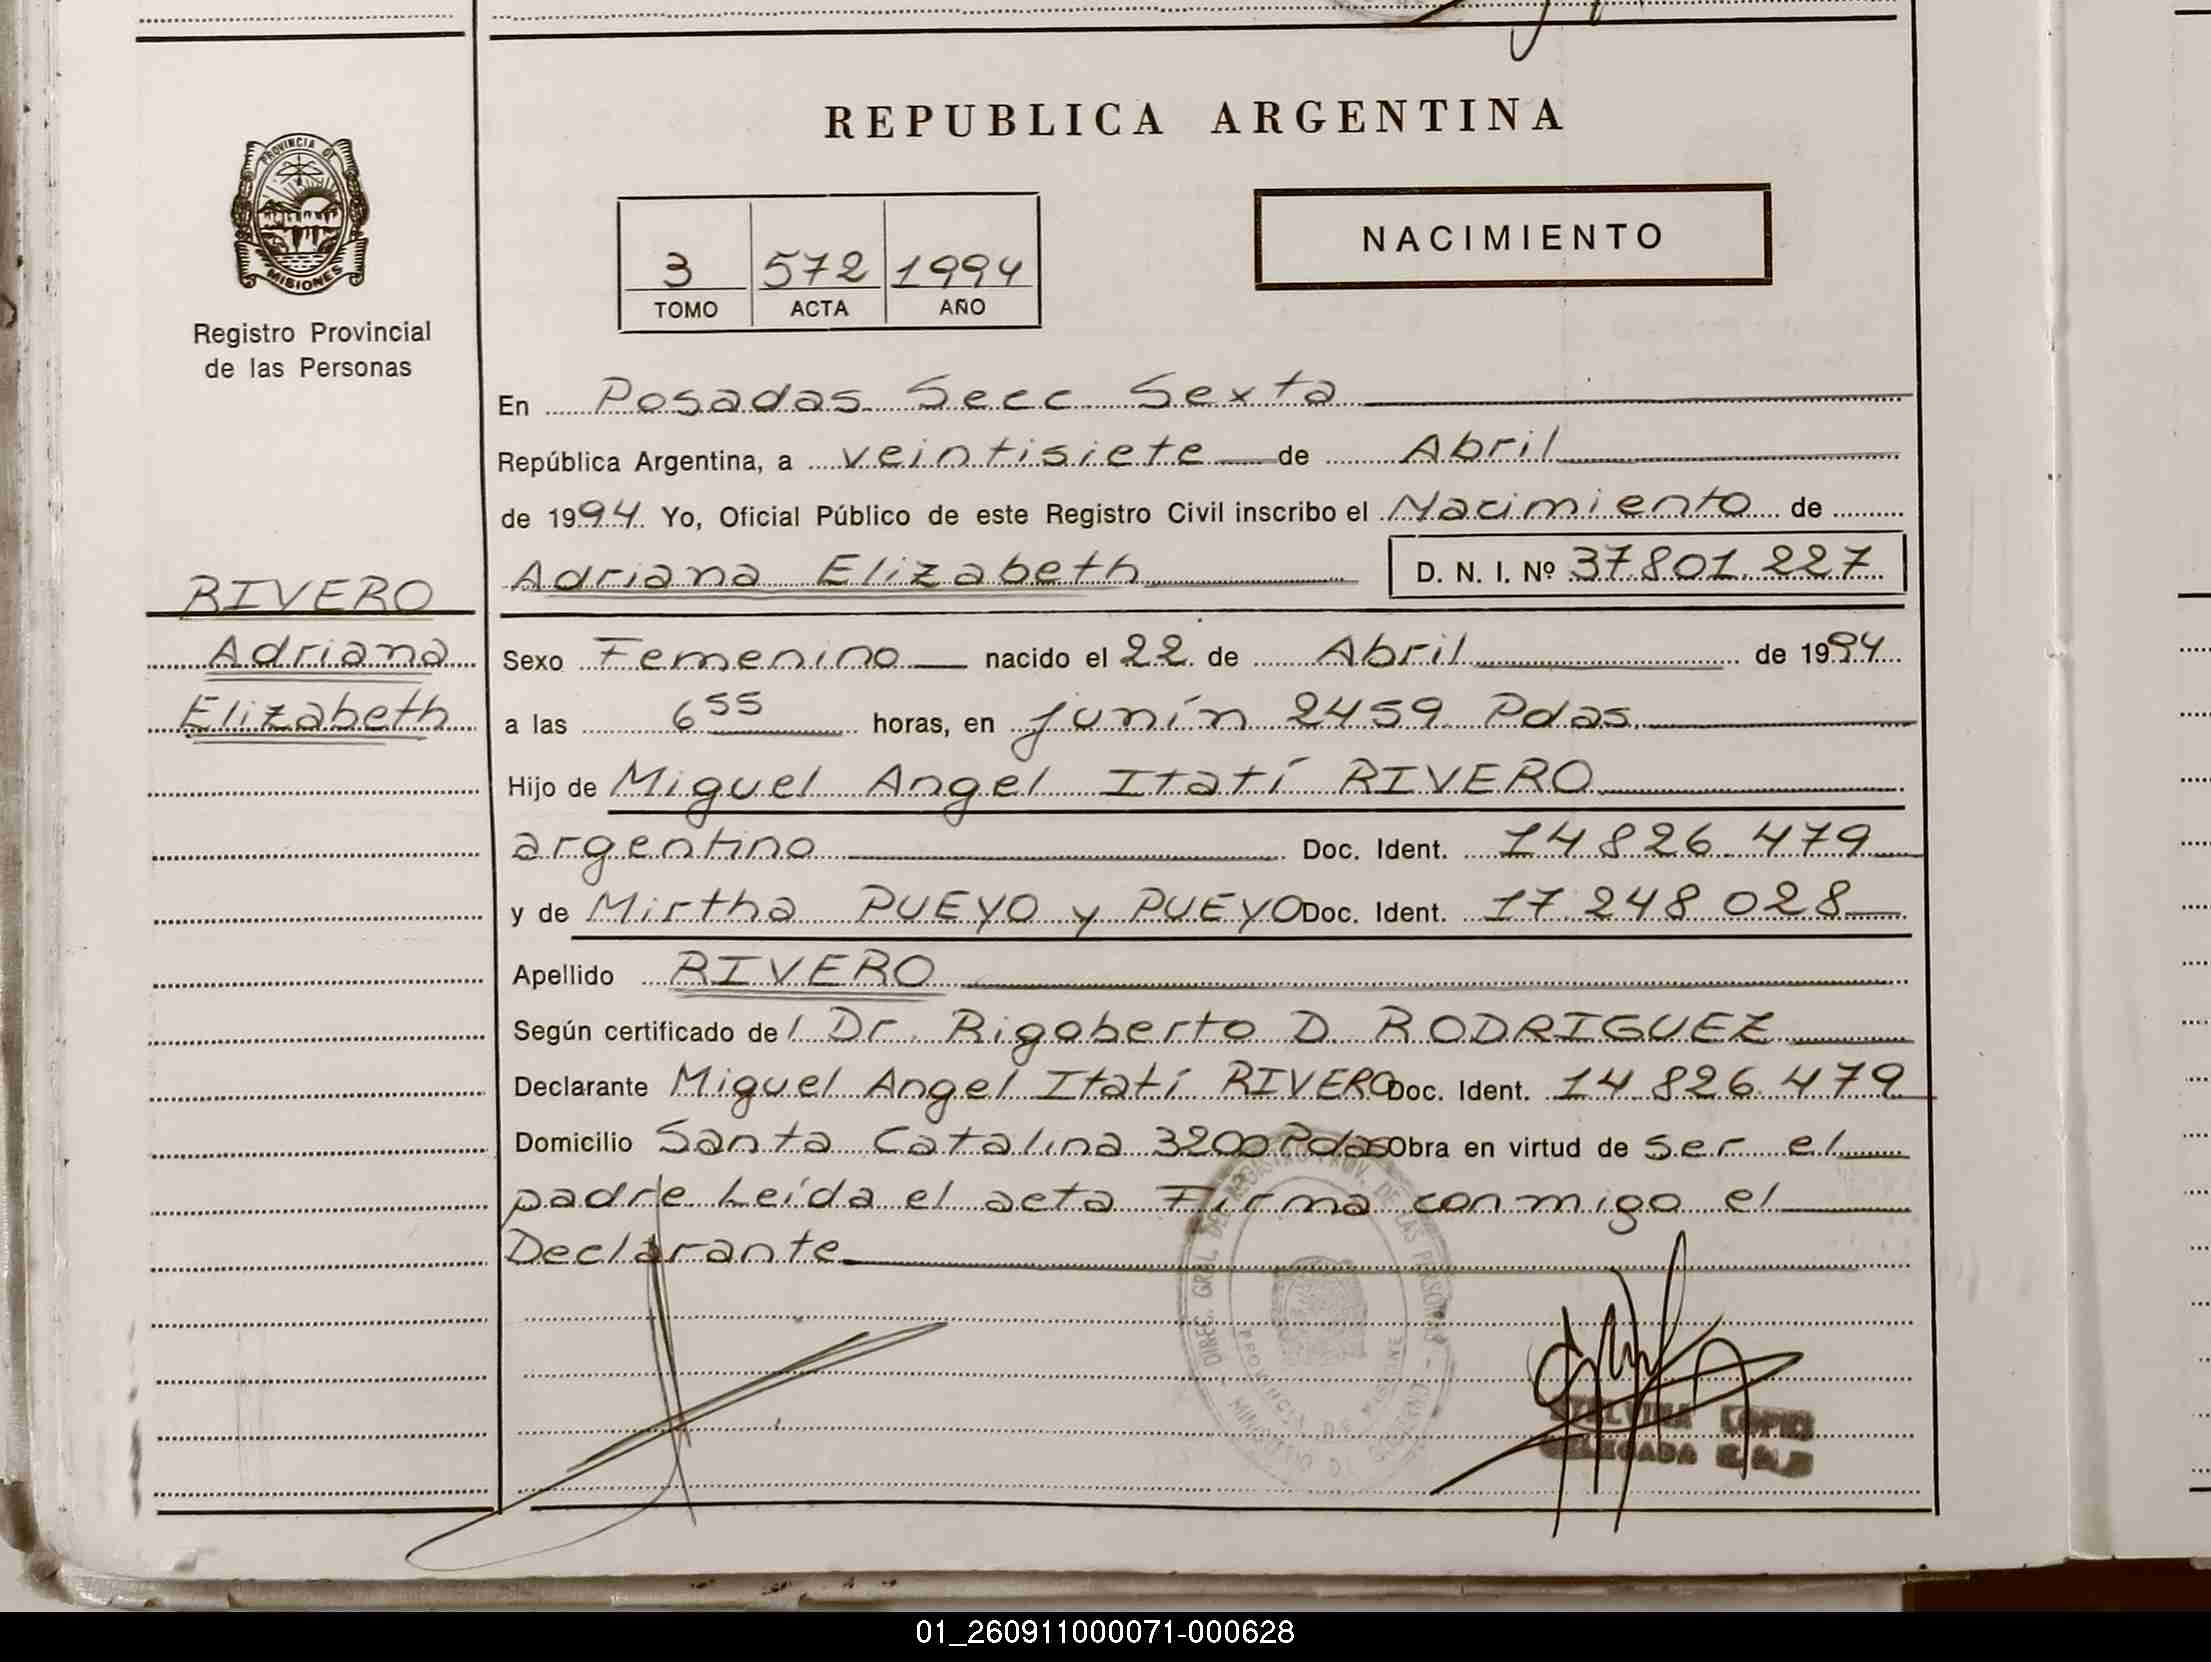 REPUBLICA ARGENTINA
PROVINCIA DE
MISIONES
Registro Provincial
de las Personas
NACIMIENTO
3 572 1994
TOMO ACTA AÑO
En Posadas Secc Sexta
República Argentina, a veintisiete de Abril
de 1994 Yo, Oficial Público de este Registro Civil inscribo el Nacimiento de
Adriana Elizabeth D. N. I. Nº 37.801.227
RIVERO
Adriana
Elizabeth
Sexo Femenino nacido el 22 de Abril de 1994
a las 6 55 horas, en junín 2459 Pdas
Hijo de Miguel Angel Itatí RIVERO
argentino Doc. Ident. 14 826 479
y de Mirtha PUEYO y PUEYO Doc. Ident. 17 248 028
Apellido RIVERO
Según certificado del Dr. Rigoberto D. RODRIGUEZ
Declarante Miguel Angel Itatí RIVERO Doc. Ident. 14 826 479
Domicilio Santa Catalina 3200 Pdas Obra en virtud de ser el
padre Leída el acta Firma conmigo el
Declarante
DIREC. GRAL. DEL REGISTRO PROV. DE LAS PERSONAS - MINISTERIO DE GOBIERNO -
PROVINCIA DE MISIONES
DELEGADA
01_260911000071-000628